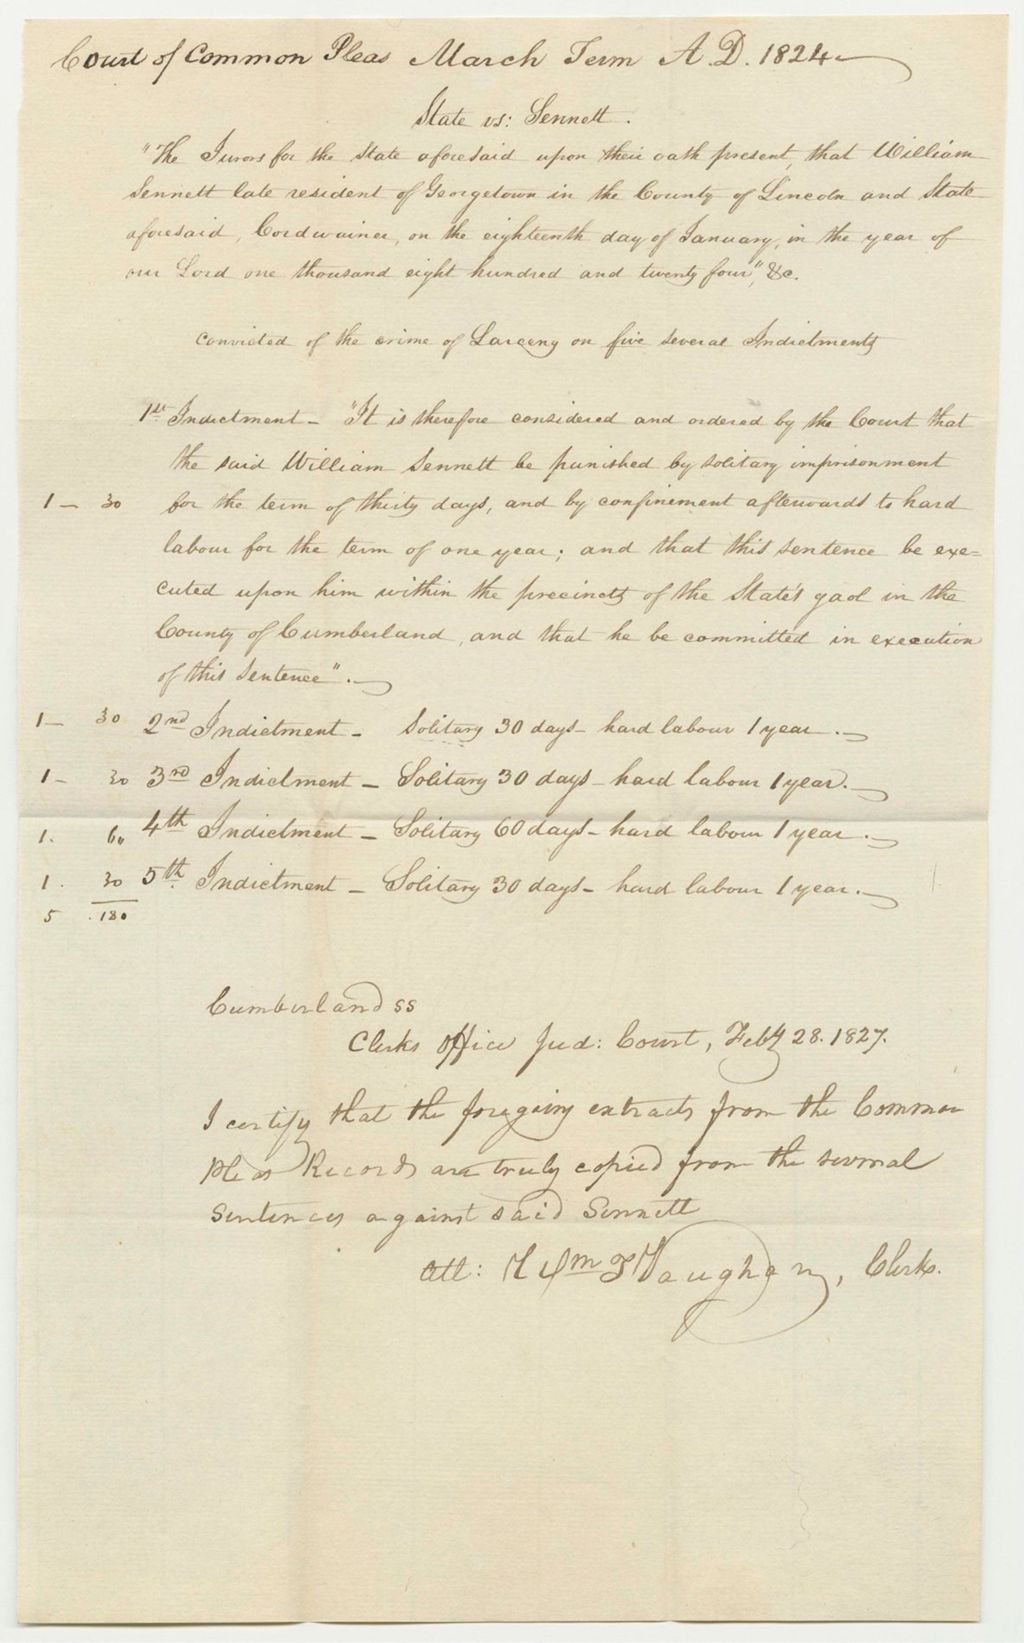 Court of Common Pleas March Term A.D. 1824
State vs: Sennett.
"The Jurors for the State aforesaid upon their oath present, that William
Sennett late resident of Georgetown in the County of Lincoln and State
aforesaid, Cordwainer, on the eighteenth day of January, in the year of
our Lord one thousand eight hundred and twenty four", &c.
convicted of the crime of Larceny on five several Indictments
1st Indictment – "It is therefore considered and ordered by the Court that
the said William Sennett be punished by solitary imprisonment
1 – 30 for the term of thirty days, and by confinement afterwards to hard
labour for the term of one year; and that this sentence be exe=
cuted upon him within the precincts of the State's gaol in the
County of Cumberland, and that he be committed in execution
of this sentence".
1 – 30 2nd Indictment – Solitary 30 days – hard labour 1 year.
1 – 30 3rd Indictment – Solitary 30 days – hard labour 1 year.
1. 60 4th Indictment – Solitary 60 days – hard labour 1 year.
1. 30 5th Indictment – Solitary 30 days – hard labour 1 year.
5 .180
Cumberland ss
Clerks Office Jud: Court, Feby 28. 1827.
I certify that the foregoing extracts from the Common
Pleas Records are truly copied from the several
Sentences against said Sennett
Att: Wm T Vaughan, Clerk.